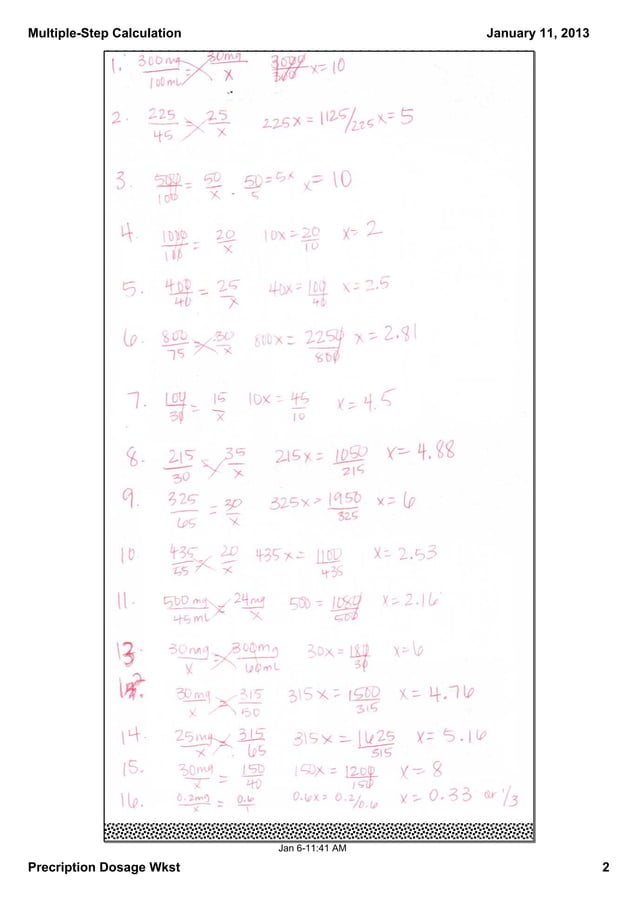 Multiple-Step Calculation January 11, 2013
1. 300mg/100mL = 30mg/x 3000/300 x=10
2. 225/45 = 25/x 225x = 1125/225 x=5
3. 500/100 = 50/x 50/5 = 5x x=10
4. 1000/100 = 20/x 10x = 20/10 x=2
5. 400/40 = 25/x 40x = 100/40 x=2.5
6. 800/75 = 30/x 800x = 2250/800 x=2.81
7. 100/30 = 15/x 10x = 45/10 x=4.5
8. 215/30 = 35/x 215x = 1050/215 x=4.88
9. 325/65 = 30/x 325x = 1950/325 x=6
10. 435/55 = 20/x 435x = 1100/435 x=2.53
11. 500mg/45mL = 24mg/x 500 = 1080/500 x=2.16
13. 30mg/x = 300mg/60mL 30x = 180/30 x=6
12. 30mg/x = 315/50 315x = 1500/315 x=4.76
14. 25mg/x = 315/65 315x = 1625/515 x=5.16
15. 30mg/x = 150/40 150x = 1200/150 x=8
16. 0.2mg/x = 0.6/1 0.6x = 0.2/0.6 x=0.33 or 1/3
Jan 6-11:41 AM
Precription Dosage Wkst 2